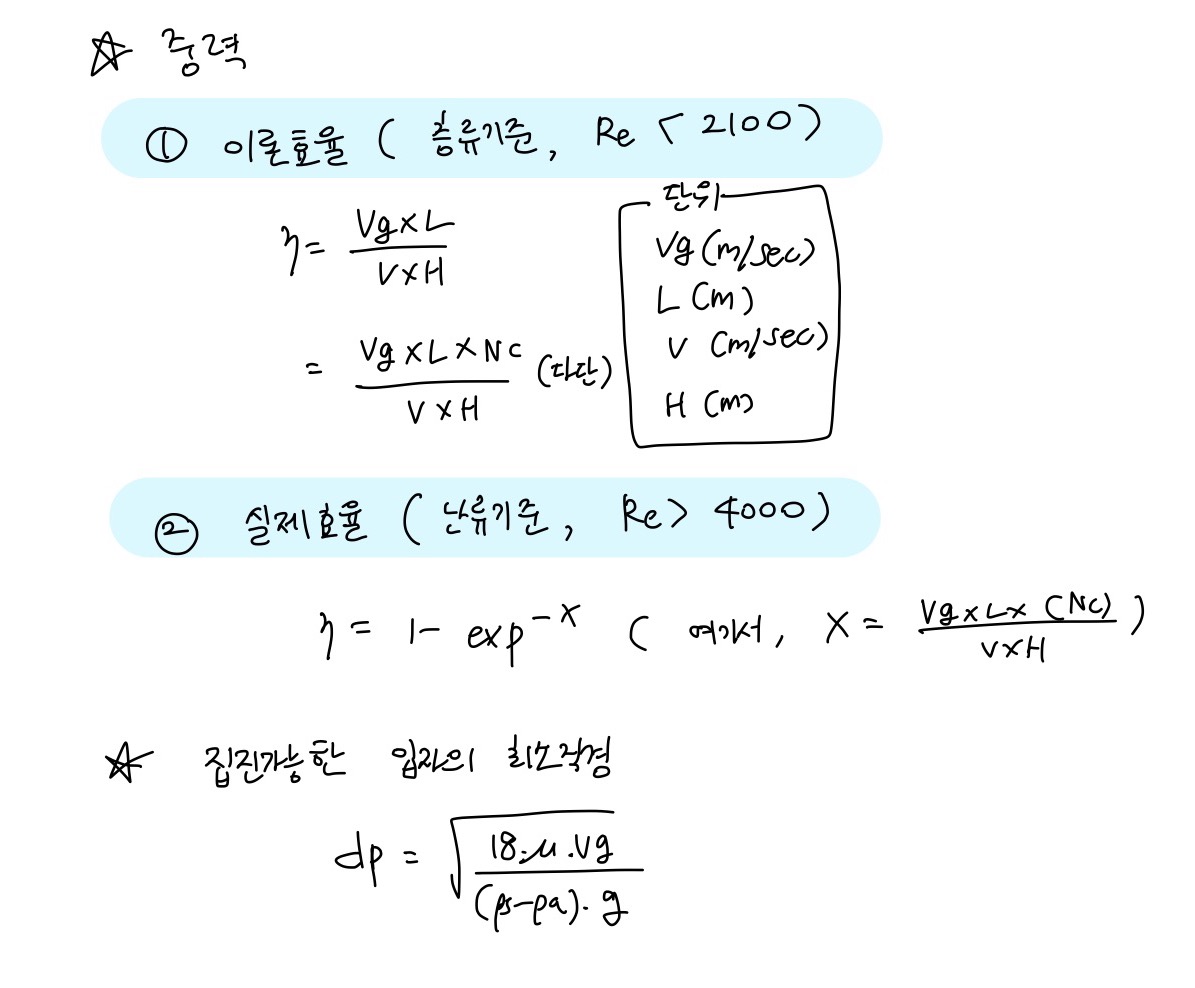 ☆ 중력
① 이론효율 ( 층류기준, Re < 2100)
η = Vg×L / V×H
= Vg×L×Nc / V×H (다단)
단위
Vg (m/sec)
L (m)
V (m/sec)
H (m)
② 실제효율 ( 난류기준, Re > 4000)
η = 1- exp^-X ( 여기서, X = Vg×L×(Nc) / V×H )
☆ 집진가능한 입자의 최소직경
dp = √(18.μ.Vg / (ρs-ρa).g)